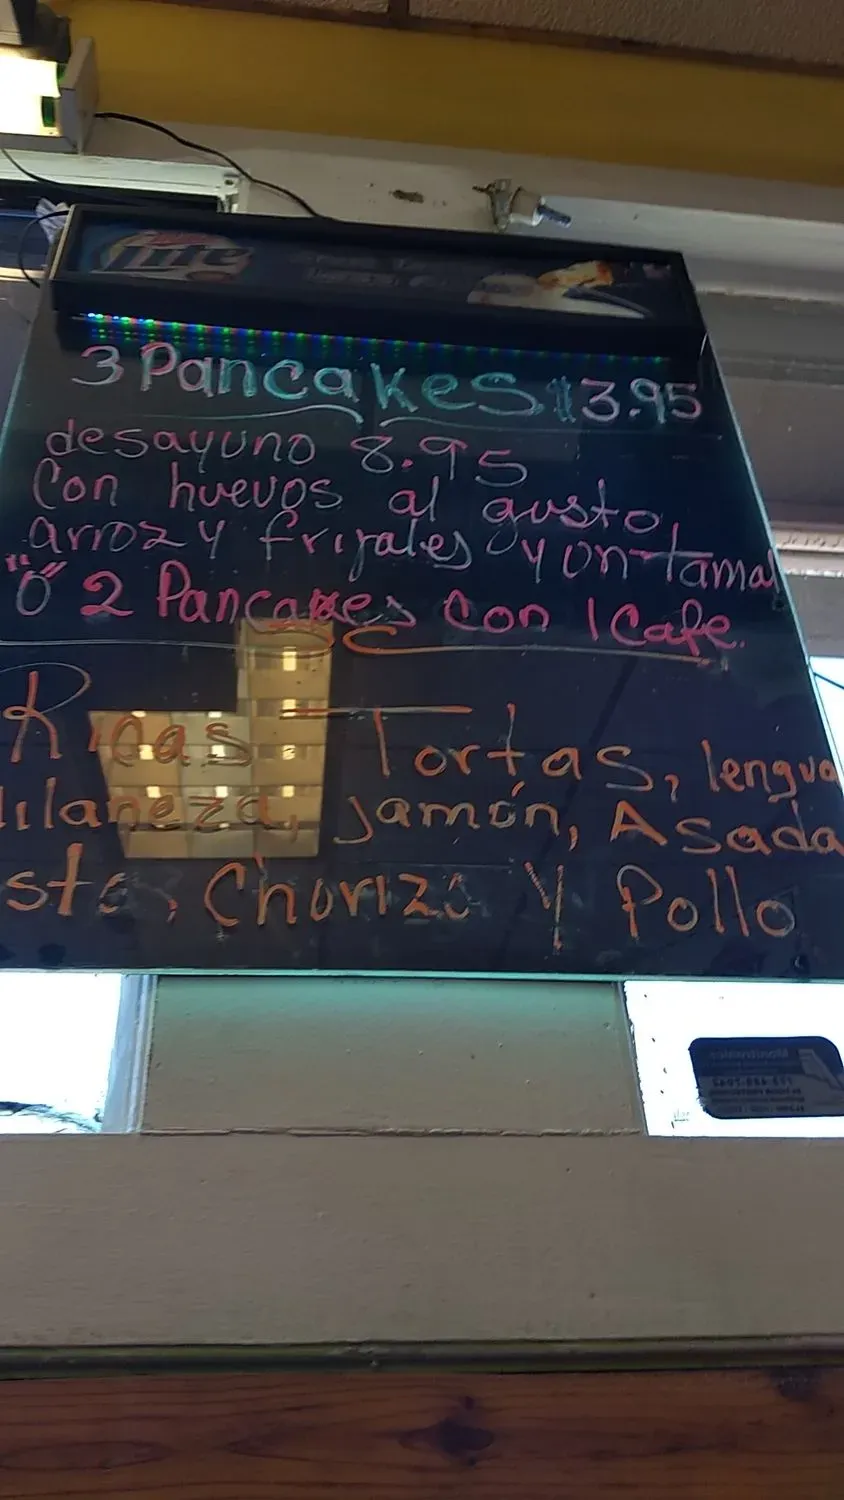 Lite
3 Pancakes $3.95
desayuno 8.95
Con huevos al gusto
arroz y frijales y un tamal
"O" 2 Pancakes con 1 Cafe.
Ricas Tortas, lengua
Milaneza, jamón, Asada
Chorizo Y Pollo